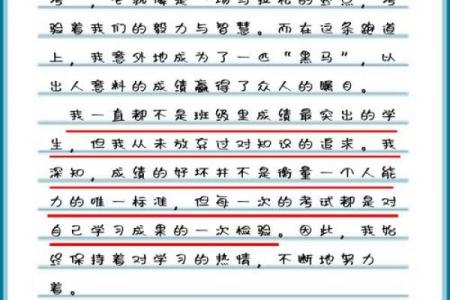 验着我们的毅力与智慧。而在这条跑道
上，我意外地成为了一匹“黑马”，以
出人意料的成绩赢得了众人的瞩目。
我一直都不是班级里成绩最突出的学
生，但我从未放弃过对知识的追求。我
深知，成绩的好坏并不是衡量一个人能
力的唯一标准，但每一次的考试都是对
自己学习成果的一次检验。因此，我始
终保持着对学习的热情，不断地努力
着。